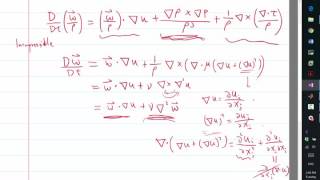 D/Dt (ω⃗/ρ) = (ω⃗/ρ) · ∇u + ∇ρ × ∇p / ρ³ + 1/ρ ∇ × (∇·τ/ρ)
Incompressible
Dω⃗/Dt = ω⃗ · ∇u + 1/ρ ∇ × (∇ · μ(∇u + (∇u)ᵀ))
= ω⃗ · ∇u + ν ∇ × ∇²u⃗
= ω⃗ · ∇u + ν ∇²ω⃗
∇u = ∂uᵢ/∂xⱼ
(∇u)ᵀ = ∂uⱼ/∂xᵢ
∇·(∇u + (∇u)ᵀ) = ∂²uᵢ/∂xⱼ² + ∂²uⱼ/∂xᵢ∂xⱼ